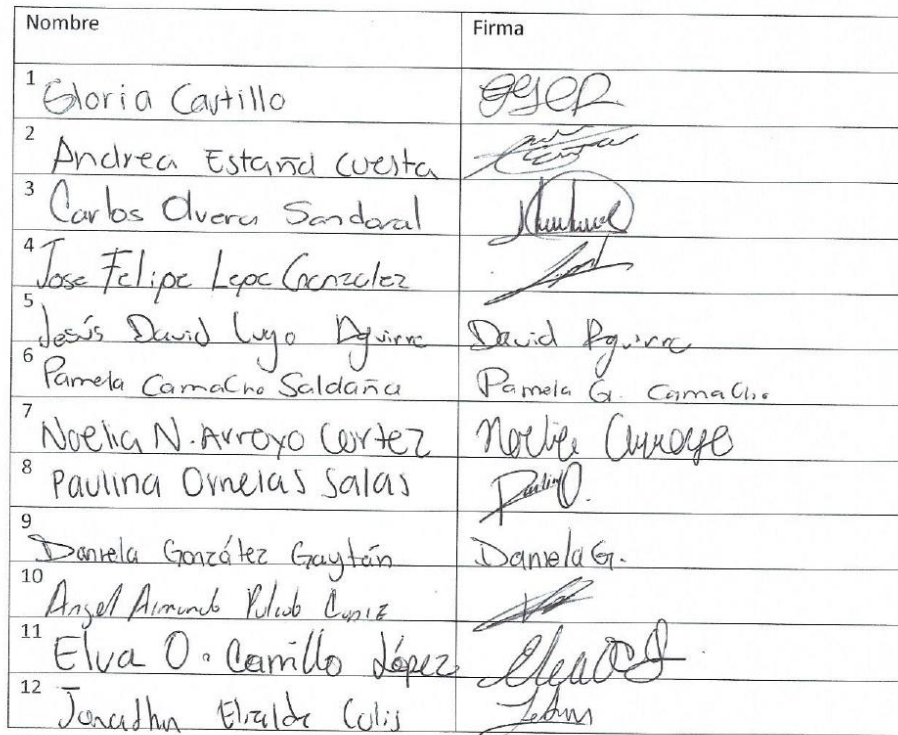 Nombre Firma
1 Gloria Castillo
2 Andrea Estañd Cuesta
3 Carlos Olvera Sandoval
4 Jose Felipe Lepe Gonzalez
5 Jesús David Lugo Aguirre David Aguirre
6 Pamela Camacho Saldaña Pamela G. Camacho
7 Noelia N. Arroyo Cortez Noelia Arroyo
8 Paulina Ornelas Salas Paulina O.
9 Daniela González Gaytán Daniela G.
10 Angel Armando
11 Elva O. Carrillo López
12 Jonadhn Elizalde Celis